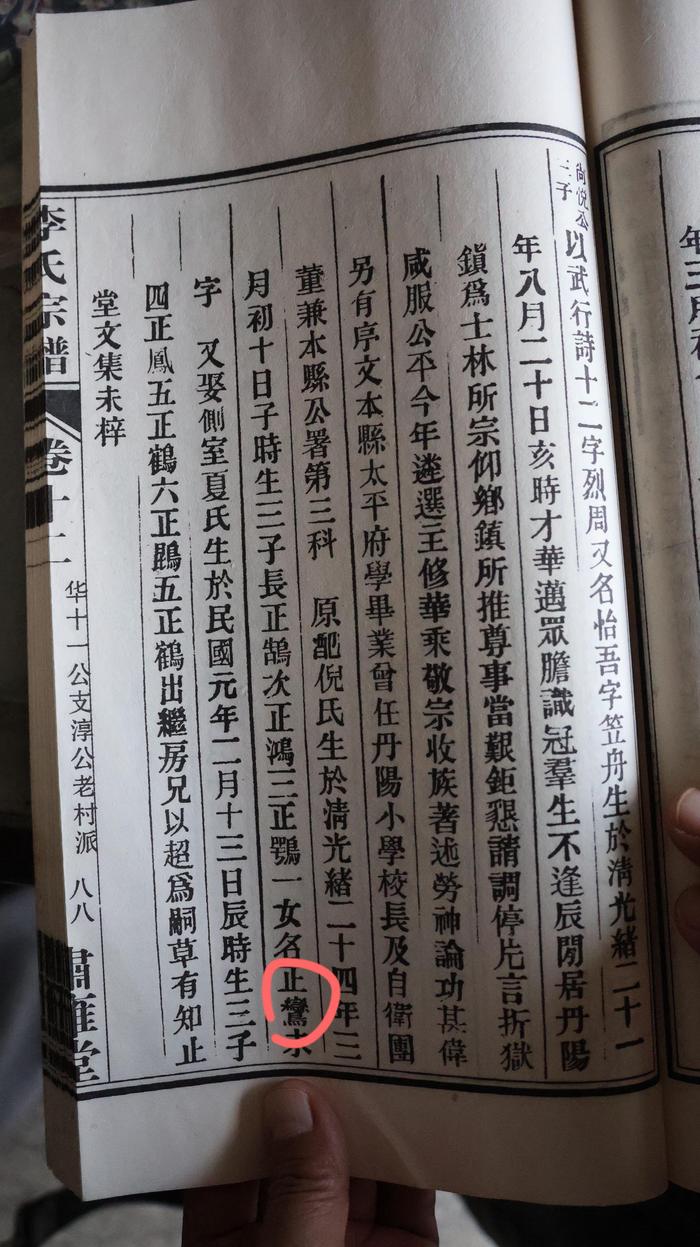 尙悅公
三子
以武行詩十二字烈周又名怡吾字笠舟生於清光緒二十一
年八月二十日亥時才華邁眾膽識冠羣生不逢辰閒居丹陽
鎭爲士林所宗仰鄉鎮所推尊事當艱鉅懇請調停片言折獄
咸服公平今年遴選主修華乘敬宗收族著述勞神論功甚偉
另有序文本縣太平府學畢業曾任丹陽小學校長及自衛團
董兼本縣公署第三科 原配倪氏生於清光緒二十四年三
月初十日子時生三子長正鵠次正鴻三正鶚一女名正鸞未
字 又娶側室夏氏生於民國元年二月十三日辰時生三子
四正鳳五正鶴六正鵾五正鶴出繼房兄以超爲嗣草有知止
堂文集未梓
李氏宗譜
卷十二
华十一公支淳公老村派
八八